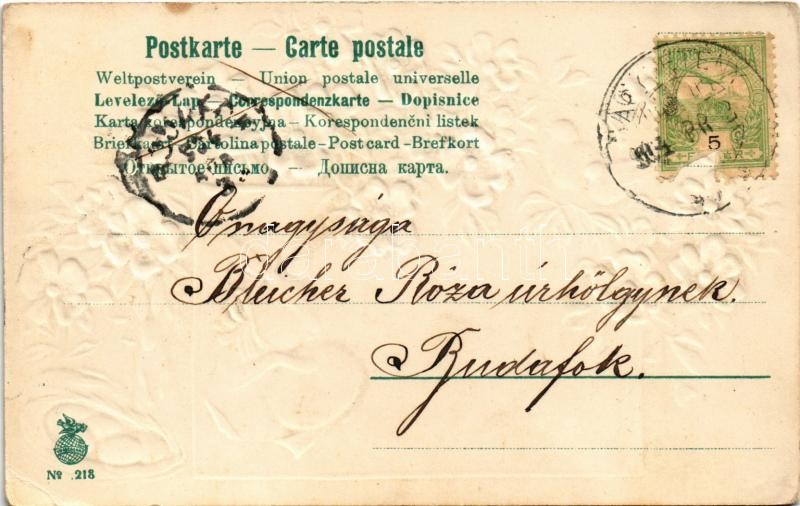 Postkarte — Carte postale
Weltpostverein — Union postale universelle
Levelező-Lap — Correspondenzkarte — Dopisnice
Karta korespondencyjna — Korespondenční listek
Briefkaart — Cartolina postale — Post card — Brefkort
Открытое письмо — Дописна карта.
5
Őnagysága
Bleicher Róza úrhölgynek.
Budafok.
№ 218